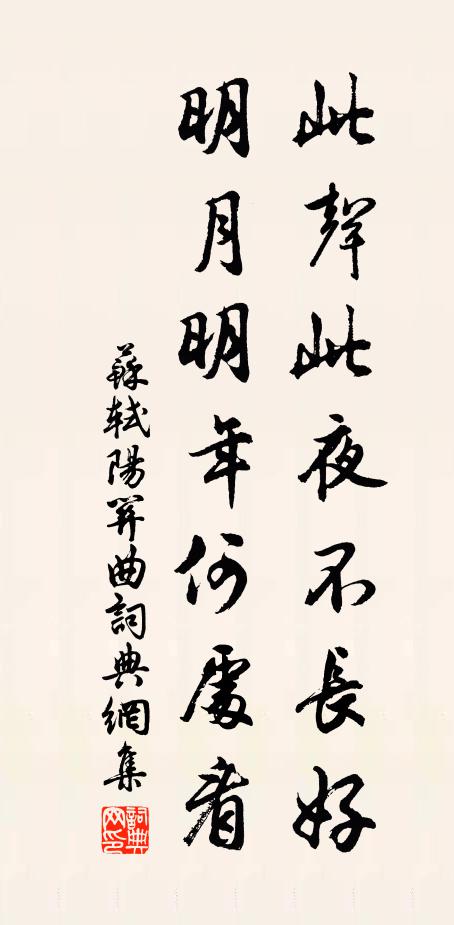 此聲此夜不長好
明月明年何處看
蘇軾陽關曲詞典網集
詞典網印